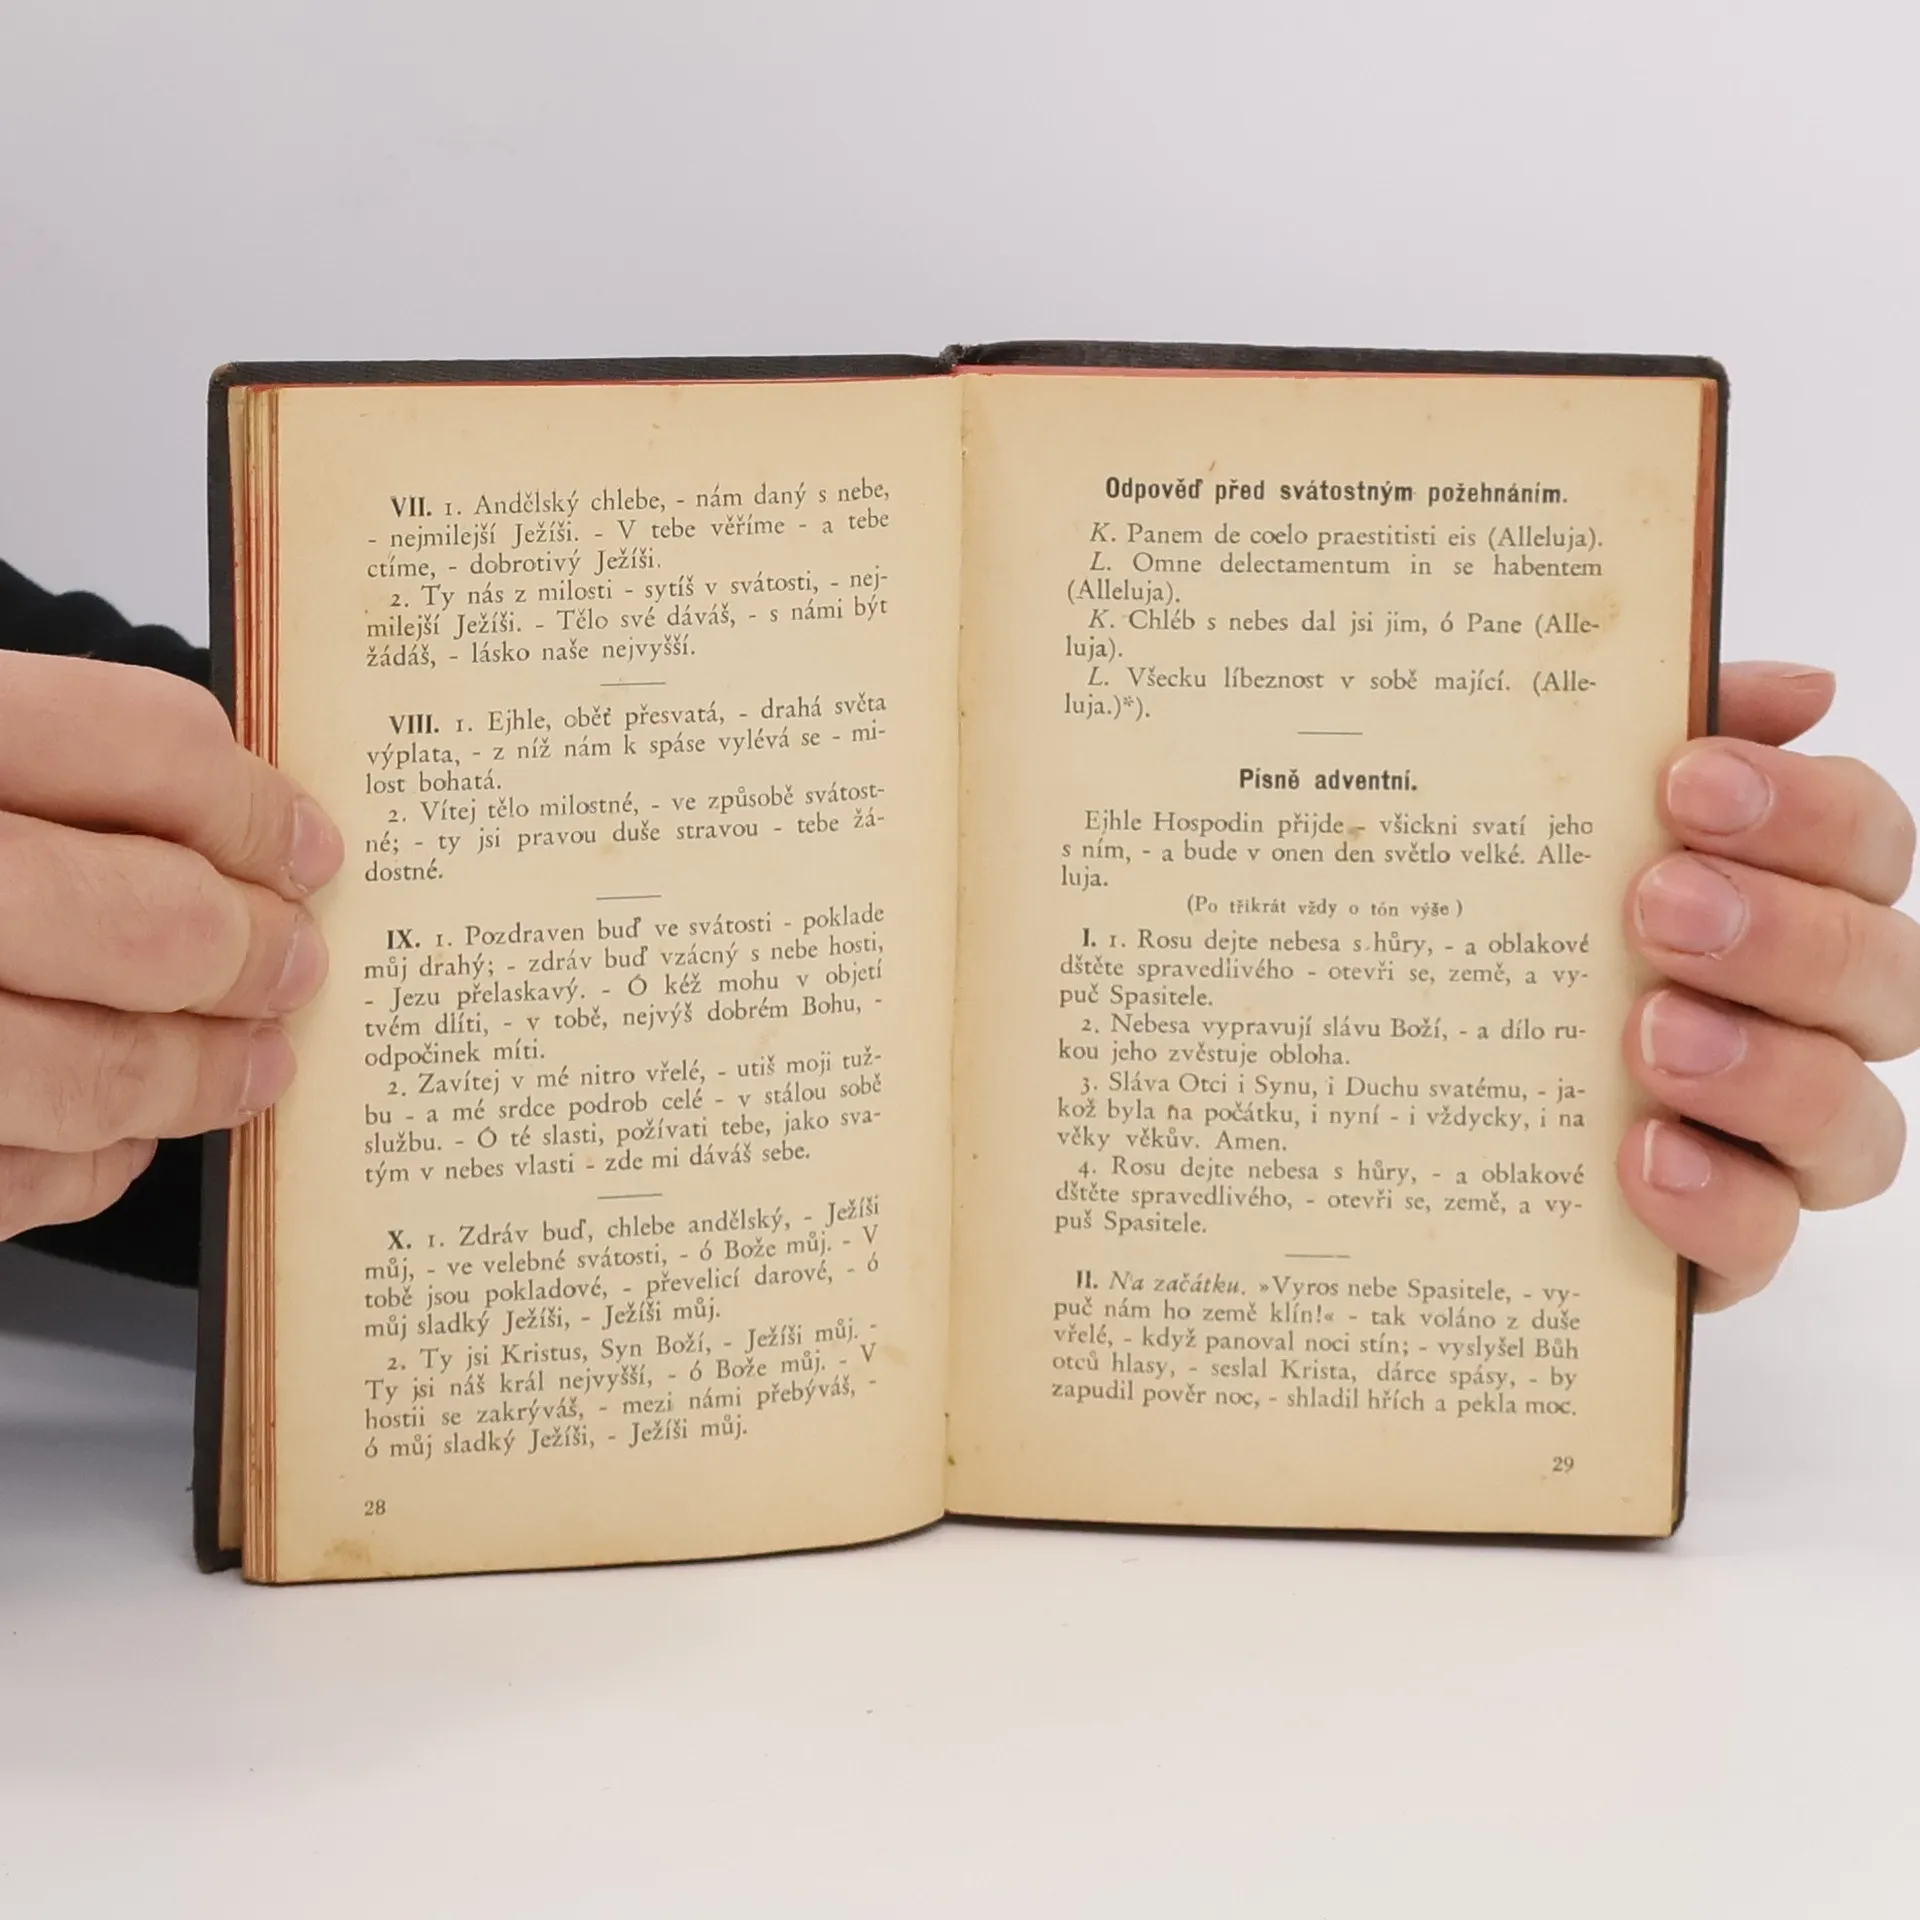 VII. 1. Andělský chlebe, - nám daný s nebe,
- nejmilejší Ježíši. - V tebe věříme - a tebe
ctíme, - dobrotivý Ježíši.
2. Ty nás z milosti - sytíš v svátosti, - nej-
milejší Ježíši. - Tělo své dáváš, - s námi být
žádáš, - lásko naše nejvyšší.
VIII. 1. Ejhle, oběť přesvatá, - drahá světa
výplata, - z níž nám k spáse vylévá se - mi-
lost bohatá.
2. Vítej tělo milostné, - ve způsobě svátost-
né; - ty jsi pravou duše stravou - tebe žá-
dostné.
IX. 1. Pozdraven buď ve svátosti - poklade
můj drahý; - zdráv buď vzácný s nebe hosti,
- Jezu přelaskavý. - Ó kéž mohu v objetí
tvém dlíti, - v tobě, nejvýš dobrém Bohu, -
odpočinek míti.
2. Zavítej v mé nitro vřelé, - utiš moji tuž-
bu - a mé srdce podrob celé - v stálou sobě
službu. - Ó té slasti, požívati tebe, jako sva-
tým v nebes vlasti - zde mi dáváš sebe.
X. 1. Zdráv buď, chlebe andělský, - Ježíši
můj, - ve velebné svátosti, - ó Bože můj. - V
tobě jsou pokladové, - převelicí darové, - ó
můj sladký Ježíši, - Ježíši můj.
2. Ty jsi Kristus, Syn Boží, - Ježíši můj. -
Ty jsi náš král nejvyšší, - ó Bože můj. - V
hostii se zakrýváš, - mezi námi přebýváš, -
ó můj sladký Ježíši, - Ježíši můj.
28
Odpověď před svátostným požehnáním.
K. Panem de coelo praestitisti eis (Alleluja).
L. Omne delectamentum in se habentem
(Alleluja).
K. Chléb s nebes dal jsi jim, ó Pane (Alle-
luja).
L. Všecku líbeznost v sobě mající. (Alle-
luja.)*).
Písně adventní.
Ejhle Hospodin přijde - všickni svatí jeho
s ním, - a bude v onen den světlo velké. Alle-
luja.
(Po třikrát vždy o tón výše)
I. 1. Rosu dejte nebesa s hůry, - a oblakové
dštěte spravedlivého - otevři se, země, a vy-
puč Spasitele.
2. Nebesa vypravují slávu Boží, - a dílo ru-
kou jeho zvěstuje obloha.
3. Sláva Otci i Synu, i Duchu svatému, - ja-
kož byla na počátku, i nyní - i vždycky, i na
věky věkův. Amen.
4. Rosu dejte nebesa s hůry, - a oblakové
dštěte spravedlivého, - otevři se, země, a vy-
puš Spasitele.
II. Na začátku. »Vyros nebe Spasitele, - vy-
puč nám ho země klín!« - tak voláno z duše
vřelé, - když panoval noci stín; - vyslyšel Bůh
otců hlasy, - seslal Krista, dárce spásy, - by
zapudil pověr noc, - shladil hřích a pekla moc.
29